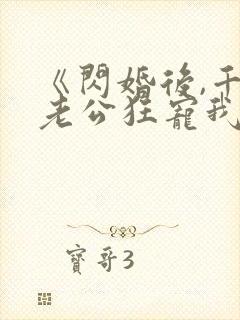 《閃婚後,千
老公狂寵我
寶哥3